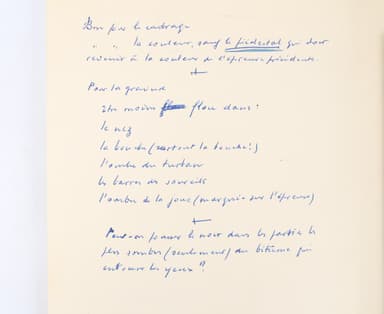 Bon pour le cadrage
" " la couleur, sauf le piédestal qui doit
revenir à la couleur de l'épreuve précédente.
+
Pour la gravure
Etre moins flou dans :
le nez
la bouche (surtout la bouche !)
l'ombre du turban
les barres des sourcils
l'ombre de la joue (marquée sur l'épreuve)
+
Peut-on pousser le noir dans les parties les
plus sombres (seulement) du bitume qui
entoure les yeux ?